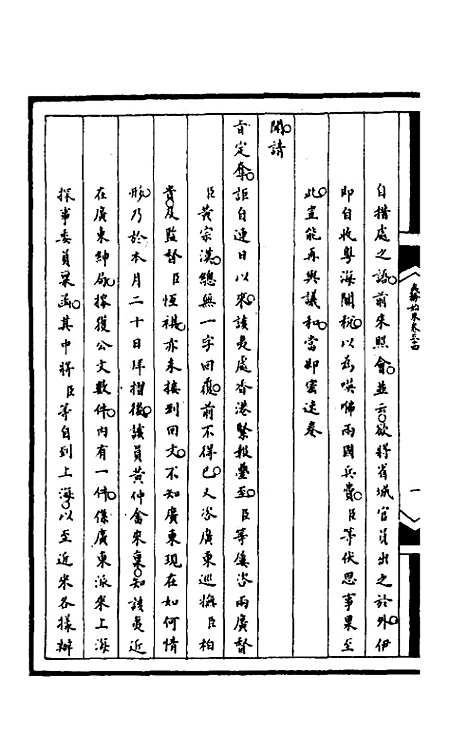 籌辦夷務始末卷三十四
一
自措處之語前來照會並云欲將省城官員出之於外伊
即自收粵海關稅以為㗎㖠兩國兵費臣等伏思事果至
此豈能再與議和當即密速奏
聞請
旨定奪詎自連日以來該夷處香港緊報疊至臣等屢咨兩廣督
臣黃宗漢總無一字回復前不得已又咨廣東巡撫臣柏
貴及監督臣恆祺亦未接到回文不知廣東現在如何情
形乃於本月二十日拜摺後該員黃仲畬來稟知該員近
在廣東紳局探獲公文數件內有一件係廣東派來上海
探事委員稟函其中將臣等自到上海以至近來各樣辦